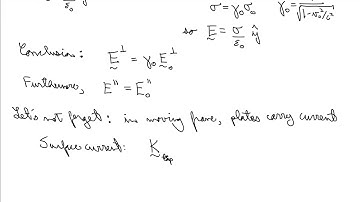 σ = γ₀σ₀ γ₀ = 1/√(1-v₀²/c²)
so E = σ/ε₀ ŷ
Conclusion: E^⊥ = γ₀ E₀^⊥
Furthermore, E^∥ = E₀^∥
Let's not forget: in moving frame, plates carry current
Surface current: K